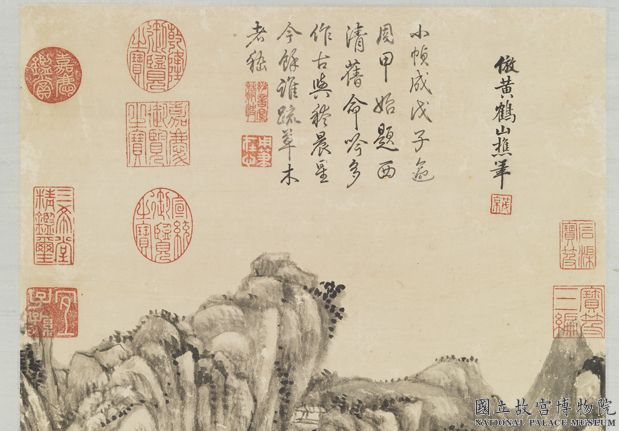 倣黃鶴山樵筆
茂京
小幀成戊子迨
周甲始題西
清舊命吟多
作古與嵇晨星
今餘誰疏草木
老嵇
用筆在心
乾隆御覽之寶
嘉慶御覽之寶
宣統御覽之寶
嘉慶鑑賞
三希堂精鑑璽
宜子孫
石渠寶笈
寶笈三編
國立故宮博物院
NATIONAL PALACE MUSEUM